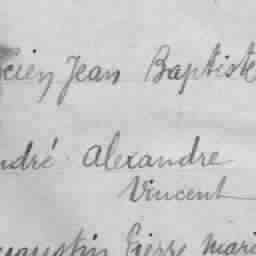 cien Jean Baptiste
ndré Alexandre
Vincent
gustin Pierre Mari